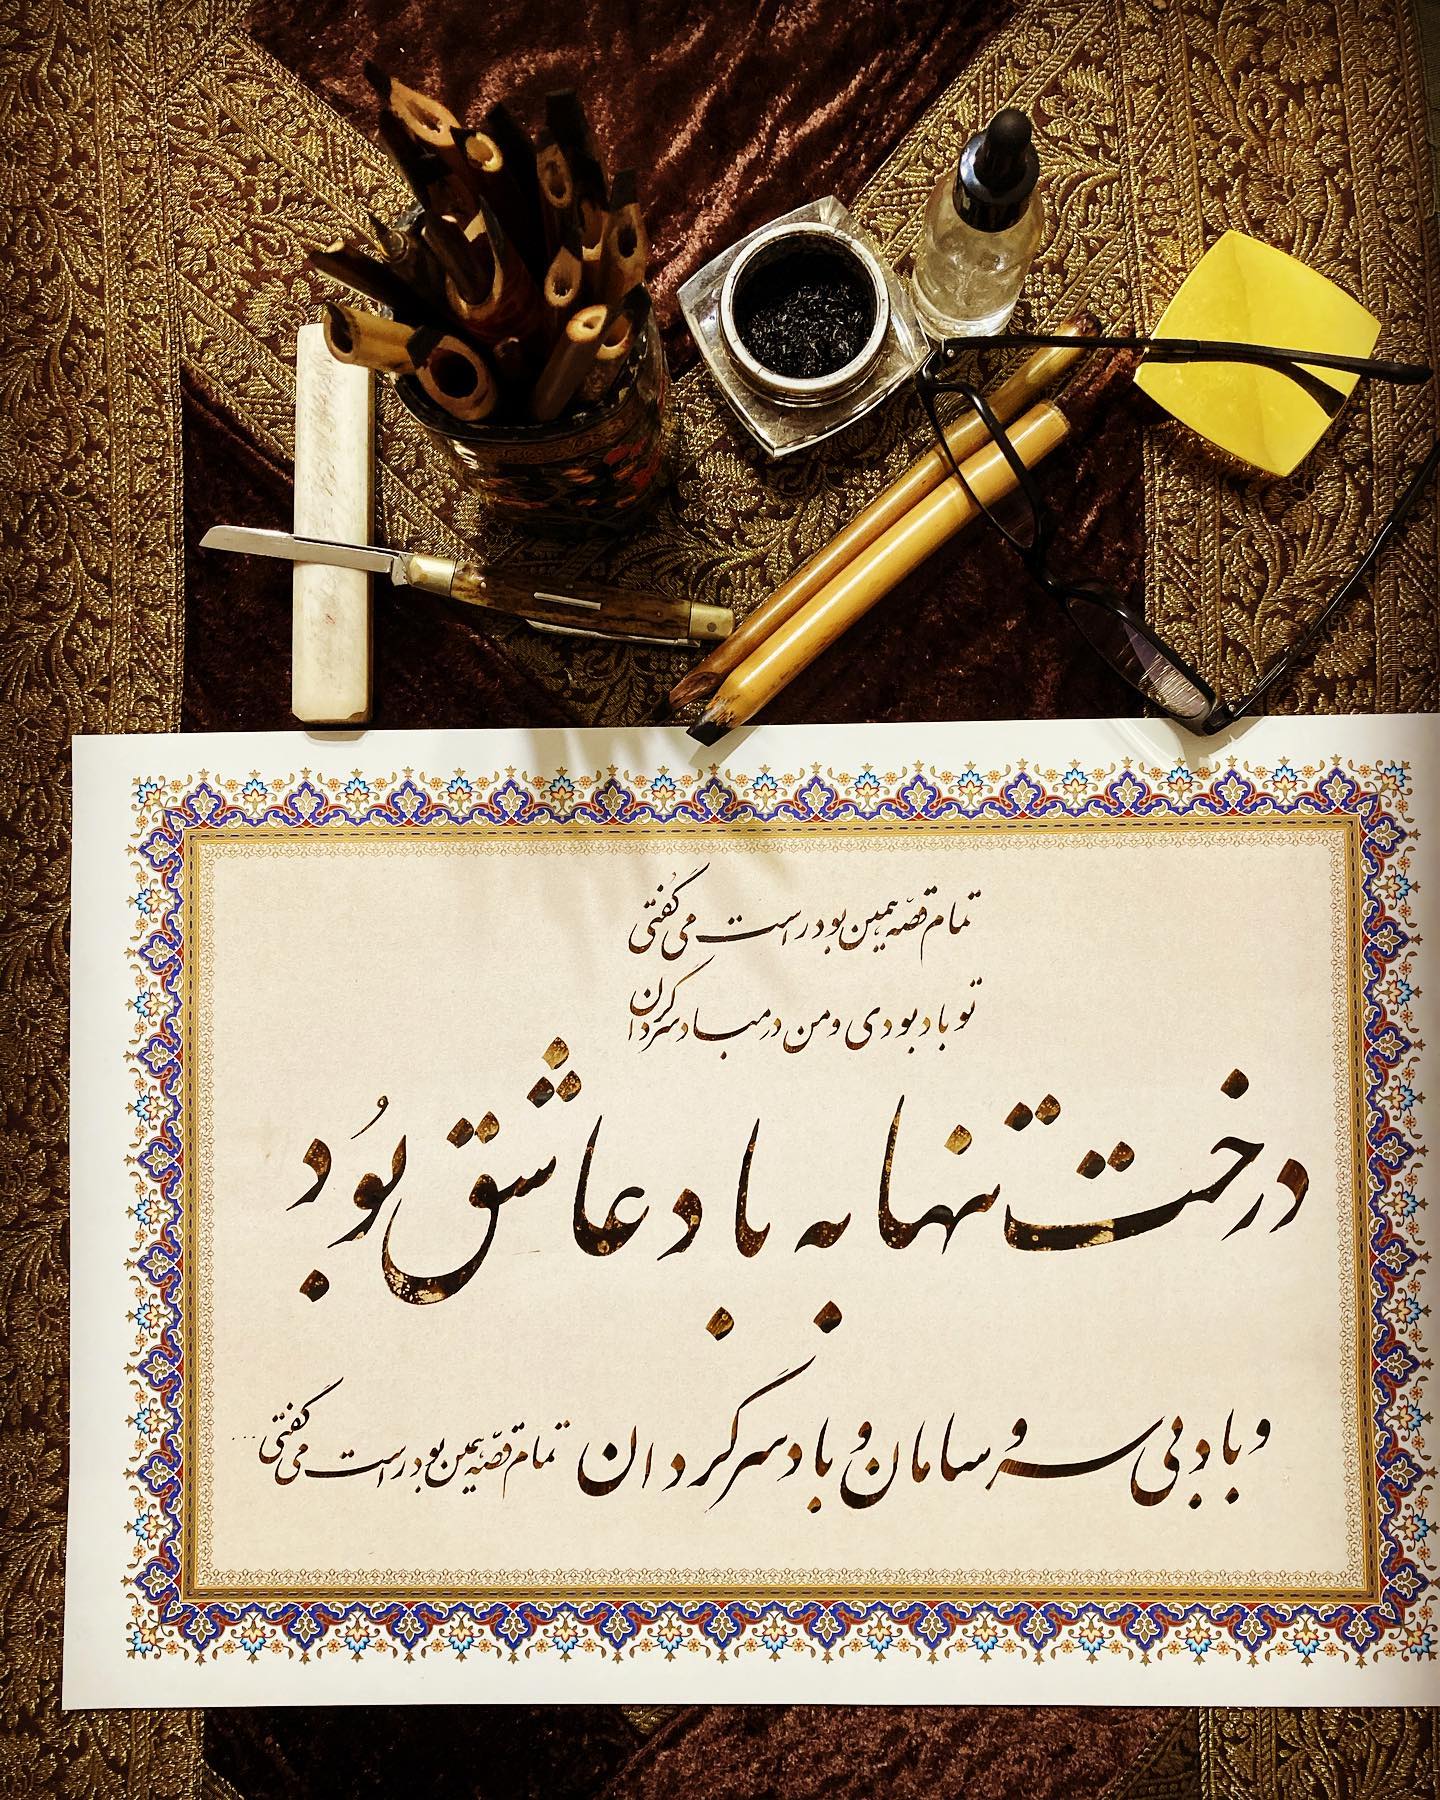 تمام قصّه همین بود راست می گفتی
تو باد بودی و من در مباد سرگردان
درخت تنها به باد عاشق بُود
و باد بی سر و سامان و باد سرگردان
تمام قصّه همین بود راست می گفتی ...